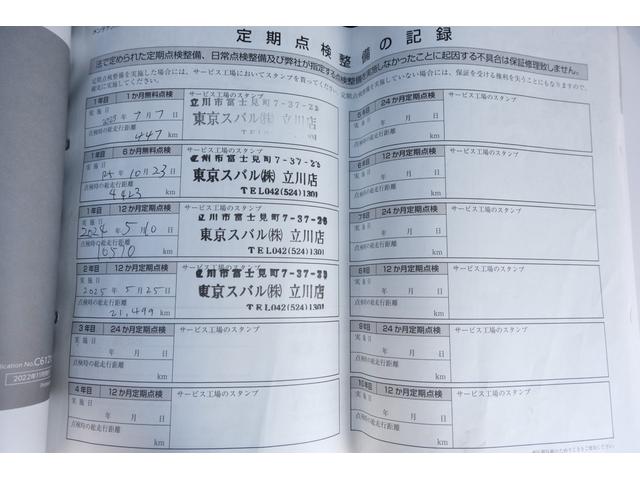 定期点検整備の記録
法で定められた定期点検整備、日常点検整備及び弊社が指定する点検整備を実施しなかったことに起因する不具合は保証修理致しません。
定期点検整備を実施した場合には、サービス工場においてスタンプを貰ってください。
1年目 1か月無料点検 サービス工場のスタンプ
実施日
2023年 7月 7日
点検時の総走行距離
447 km
立川市富士見町7-37-26
東京スバル(株) 立川店
TEL042(524)1301
1年目 6か月無料点検 サービス工場のスタンプ
実施日
R5年 10月 23日
点検時の総走行距離
4423 km
立川市富士見町7-37-26
東京スバル(株) 立川店
TEL042(524)1301
1年目 12か月定期点検 サービス工場のスタンプ
実施日
2024年 5月 10日
点検時の総走行距離
10570 km
立川市富士見町7-37-26
東京スバル(株) 立川店
TEL042(524)1301
2年目 12か月定期点検 サービス工場のスタンプ
実施日
2025年 5月 25日
点検時の総走行距離
21,499 km
立川市富士見町7-37-26
東京スバル(株) 立川店
TEL042(524)1301
3年目 24か月定期点検 サービス工場のスタンプ
実施日
年 月 日
点検時の総走行距離
km
4年目 12か月定期点検 サービス工場のスタンプ
実施日
年 月 日
点検時の総走行距離
km
5年目 24か月定期点検 サービス工場のスタンプ
実施日
年 月 日
点検時の総走行距離
km
6年目 12か月定期点検 サービス工場のスタンプ
実施日
年 月 日
点検時の総走行距離
km
7年目 24か月定期点検 サービス工場のスタンプ
実施日
年 月 日
点検時の総走行距離
km
12か月定期点検 サービス工場のスタンプ
実施日
年 月 日
点検時の総走行距離
km
9年目 24か月定期点検 サービス工場のスタンプ
実施日
年 月 日
点検時の総走行距離
km
10年目 12か月定期点検 サービス工場のスタンプ
実施日
年 月 日
点検時の総走行距離
km